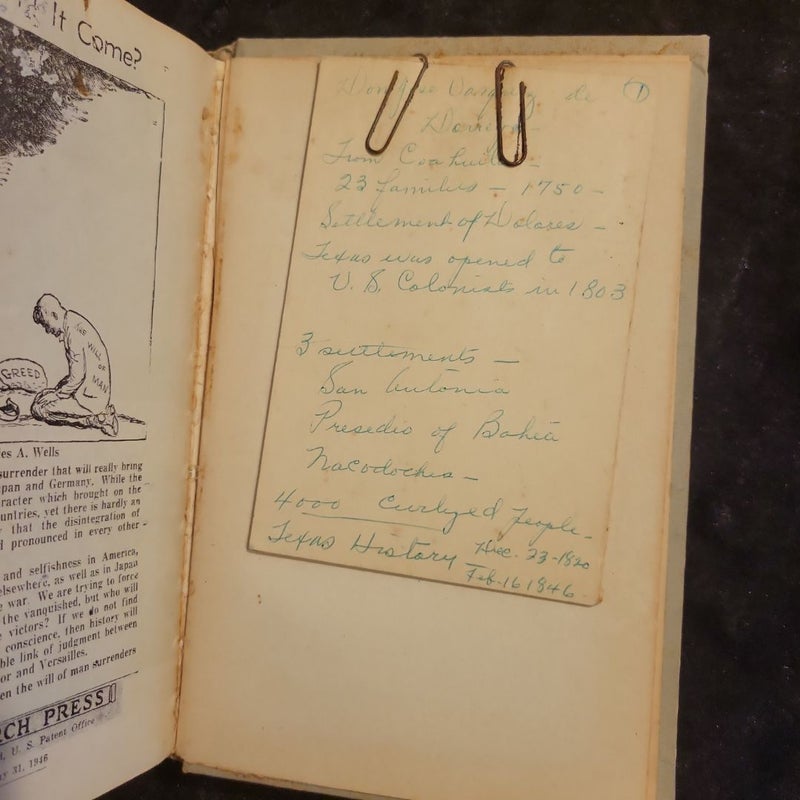 It Come?
GREED
THE WILL OF MAN
es A. Wells
surrender that will really bring
pan and Germany. While the
aracter which brought on the
ountries, yet there is hardly an
that the disintegration of
d pronounced in every other
and selfishness in America,
elsewhere, as well as in Japan
war. We are trying to force
the vanquished, but who will
victors? If we do not find
conscience, then history will
ble link of judgment between
or and Versailles.
en the will of man surrenders
RCH PRESS
U. S. Patent Office
31, 1946
Don Jose Vasquez de 1
From Coahuila -
23 families - 1750 -
Settlement of Dolores -
Texas was opened to
U. S. Colonists in 1803
3 settlements -
San Antonia
Presedio of Bahia
Nacodoches -
4000 people -
Texas History Dec. 23-1820
Feb. 16 1846